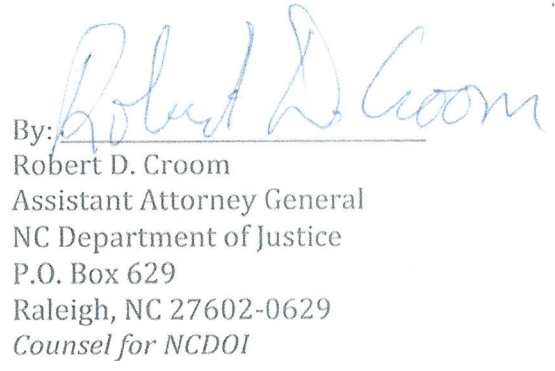 By: Robert D. Croom
Robert D. Croom
Assistant Attorney General
NC Department of Justice
P.O. Box 629
Raleigh, NC 27602-0629
Counsel for NCDOI